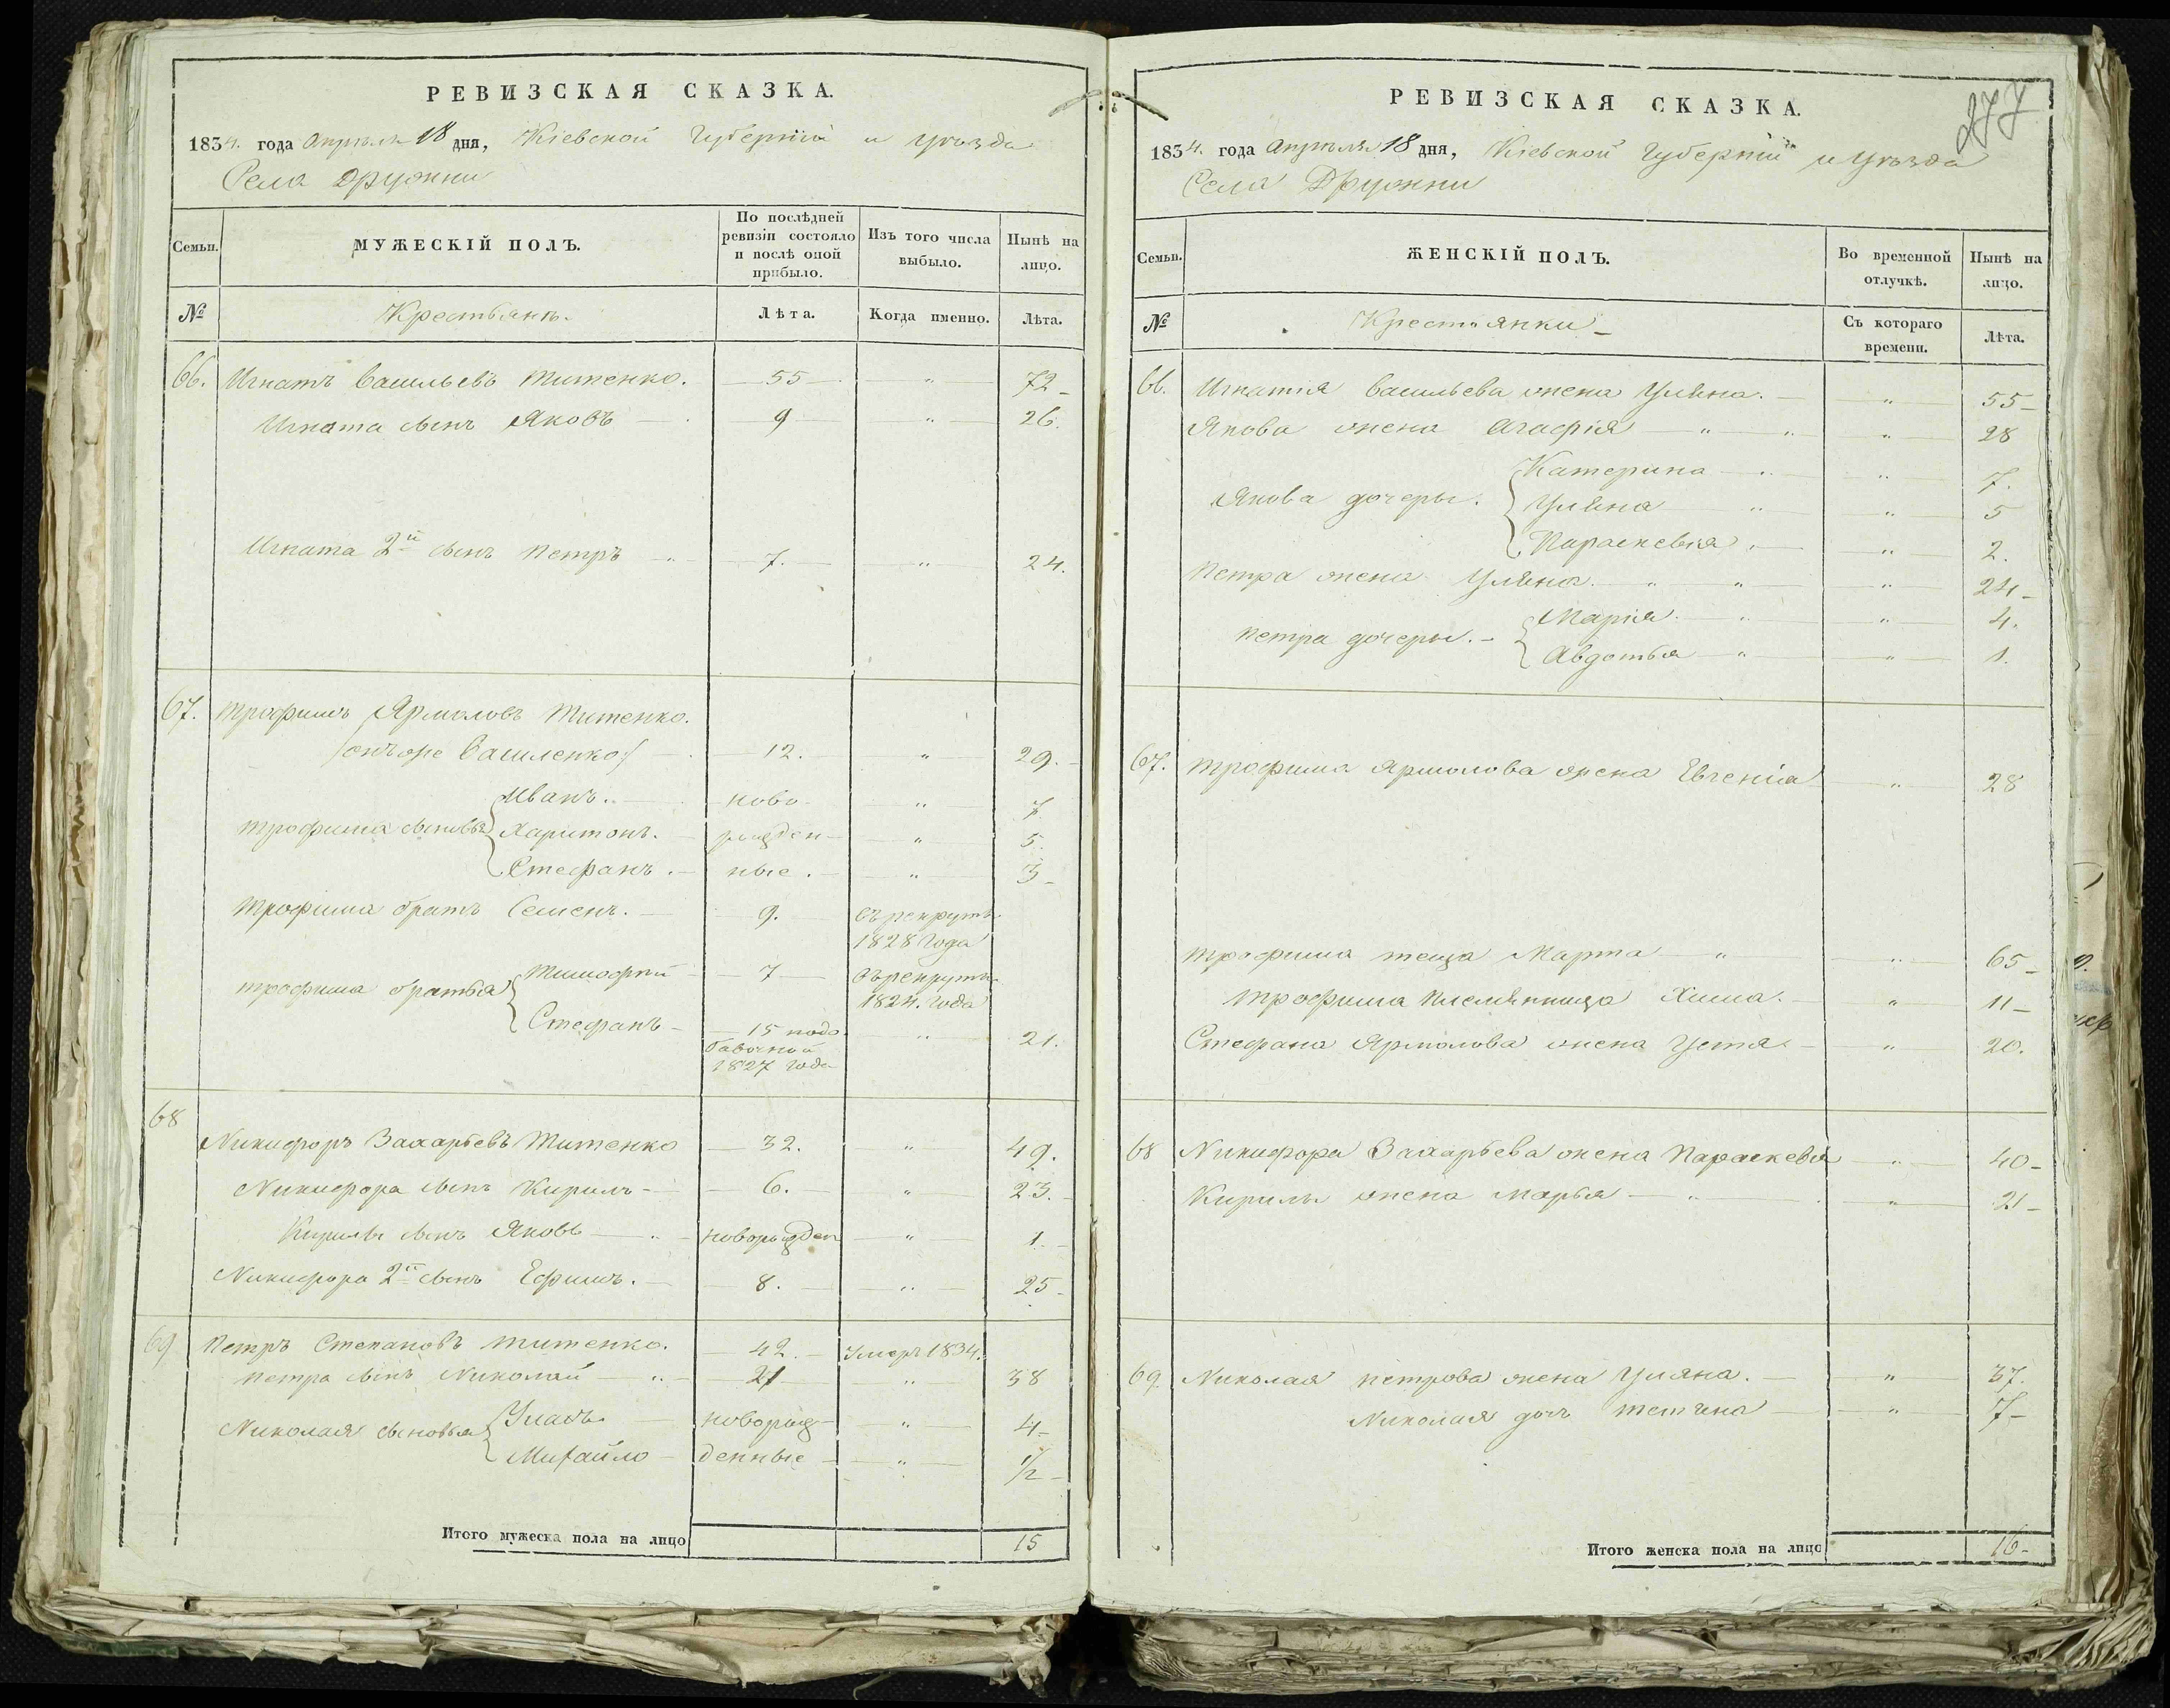 РЕВИЗСКАЯ СКАЗКА.
1834. года Апрѣля 18 дня, Кіевской Губерніи и уѣзда
Села Дружни
Семьи.
МУЖЕСКІЙ ПОЛЪ.
По послѣдней ревизіи состояло и послѣ оной прибыло.
Изъ того числа выбыло.
Нынѣ на лицо.
№
Крестьянъ.
Лѣта.
Когда именно.
Лѣта.
66. Игнатъ Васильевъ Титенко. 55 " 72
Игната сынъ Яковъ 9 " 26.
Игната 2й сынъ Петръ 7. " 24.
67. Трофимъ Ярмоловъ Титенко.
/онъ же Василенко/ 12. " 29.
Иванъ. ново " 7
Трофима сыновья Харитонъ. рожден " 5.
Стефанъ. ные. " 3
Трофима братъ Семенъ. 9. въ рекруты
1828 года
Трофима братья Тимофій 7 въ рекруты
1824. года
Стефанъ 15 подо " 21.
бавочной
1827 года
68
Никифоръ Захарьевъ Титенко 32. " 49.
Никифора сынъ Кирилъ 6. " 23.
Кирилы сынъ Яковъ новорожден " 1.
Никифора 2й сынъ Ефимъ. 8. " 25
69 Петръ Степановъ Титенко. 42. умеръ 1834.
Петра сынъ Николай 21 " 38
Николая сыновья новорож " 4
Михайло денные " 1/2
Итого мужеска пола на лицо 15
277
РЕВИЗСКАЯ СКАЗКА.
1834. года Апрѣля 18 дня, Кіевской Губерніи и уѣзда
Села Дружни
Семьи.
ЖЕНСКІЙ ПОЛЪ.
Во временной отлучкѣ.
Нынѣ на лицо.
№
Крестьянки
Съ котораго времени.
Лѣта.
66. Игнатія Васильева жена Уляна. " 55
Якова жена Агафія " 28
Катерина " 7.
Якова дочеры. Уляна " 5
Параскевія " 2.
Петра жена Уляна. " 24
Марія. " 4.
Петра дочеры. Авдотья " 1.
67. Трофима Ярмолова жена Евгенія " 28
Трофима теща Марта " 65
Трофима племянница Хима. " 11
Стефана Ярмолова жена Устя " 20.
68 Никифора Захарьева жена Параскевія " 40
Кирилы жена Марья " 21
69. Николая Петрова жена Уляна. " 37.
Николая дочь Тетяна " 7
Итого женска пола на лицо 16